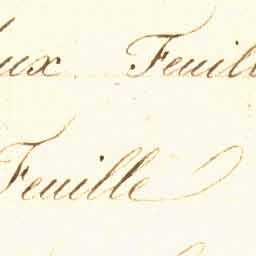 ux Feuill
Feuille